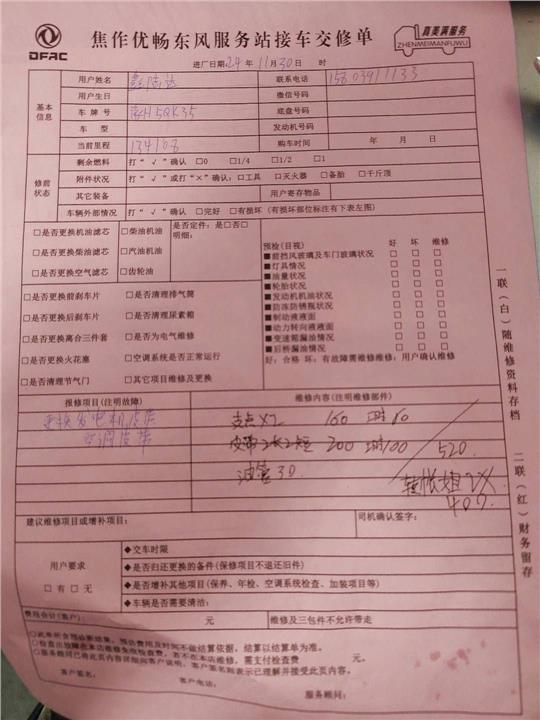 DFAC
焦作优畅东风服务站接车交修单
真美满服务
ZHENMEIMANFUWU
进厂日期24年11月30日 时
基本信息
用户姓名 联系电话
用户生日 微信号码
车牌号 底盘号码
车型 发动机号码
当前里程 购车时间 年 月 日
修前状态
剩余燃料 打“√”确认 □0 □1/4 □1/2 □1
附件状况 打“√”或打“×”确认：□工具 □灭火器 □备胎 □千斤顶
其它装备 用户寄存物品
车辆外部情况 打“√”确认 □完好 □有损坏（有损坏部位标注有下表左图）
□是否更换机油滤芯 □柴油机油 是否定件：是□否□
明细：
□是否更换柴油滤芯 □汽油机油
□是否更换空气滤芯 □齿轮油
预检(目视) 好 坏 维修
■前挡风玻璃及车门玻璃状况 □ □ □
■灯具情况 □ □ □
■油量状况 □ □ □
■轮胎状况 □ □ □
■发动机机油状况 □ □ □
■防冻防锈瓶状况 □ □ □
■制动液液面 □ □ □
■动力转向液液面 □ □ □
■变速箱漏油情况 □ □ □
■后桥漏油情况 □ □ □
好：合格 坏：有故障需维修维修：用户确认维修
□是否更换前刹车片 □是否清理排气筒
□是否更换后刹车片 □是否清理尿素箱
□是否更换离合三件套 □是否为电气维修
□是否更换火花塞 □空调系统是否正常运行
□是否清理节气门 □其它项目维修及更换
报修项目(注明故障) 维修内容(注明维修部件)
更换发电机皮带
空调皮带
支点X2 160
皮带2长2短 200 520
油管30
407
建议维修项目或增补项目： 司机确认签字：
用户要求
□有 □无
◆交车时限
◆是否归还更换的备件(保修项目不退还旧件)
◆是否增补其他项目(保养、年检、空调系统检查、加装项目等)
◆车辆是否需要清洁：
费用合计(客户)： 元 维修及三包件不允许带走
○此单所含预诊断结果、预估费用及时间不做结算依据，结算以结算单为准。
○检查出故障在本店维修免收检查费，若不在本店维修，需支付检查费 元。
○服务顾问已将此页内容详细向客户说明，客户签名则表示已理解并接受此页内容。
客户签名： 客户电话： 服务顾问：
一联（白）随维修资料存档
二联（红）财务留存